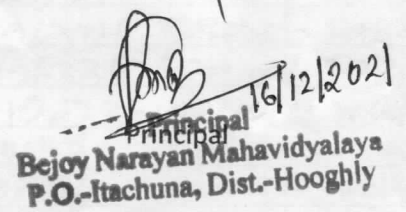 16/12/2021
Principal
Principal
Bejoy Narayan Mahavidyalaya
P.O.-Itachuna, Dist.-Hooghly